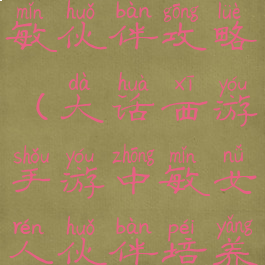 mǐn huǒ bàn gōng lüè
敏伙伴-攻略
dà huà xī yóu
(大话西游
shǒu yóu zhōng mǐn nǚ
手游中敏女
rén huǒ bàn péi yǎng
人伙伴-培养